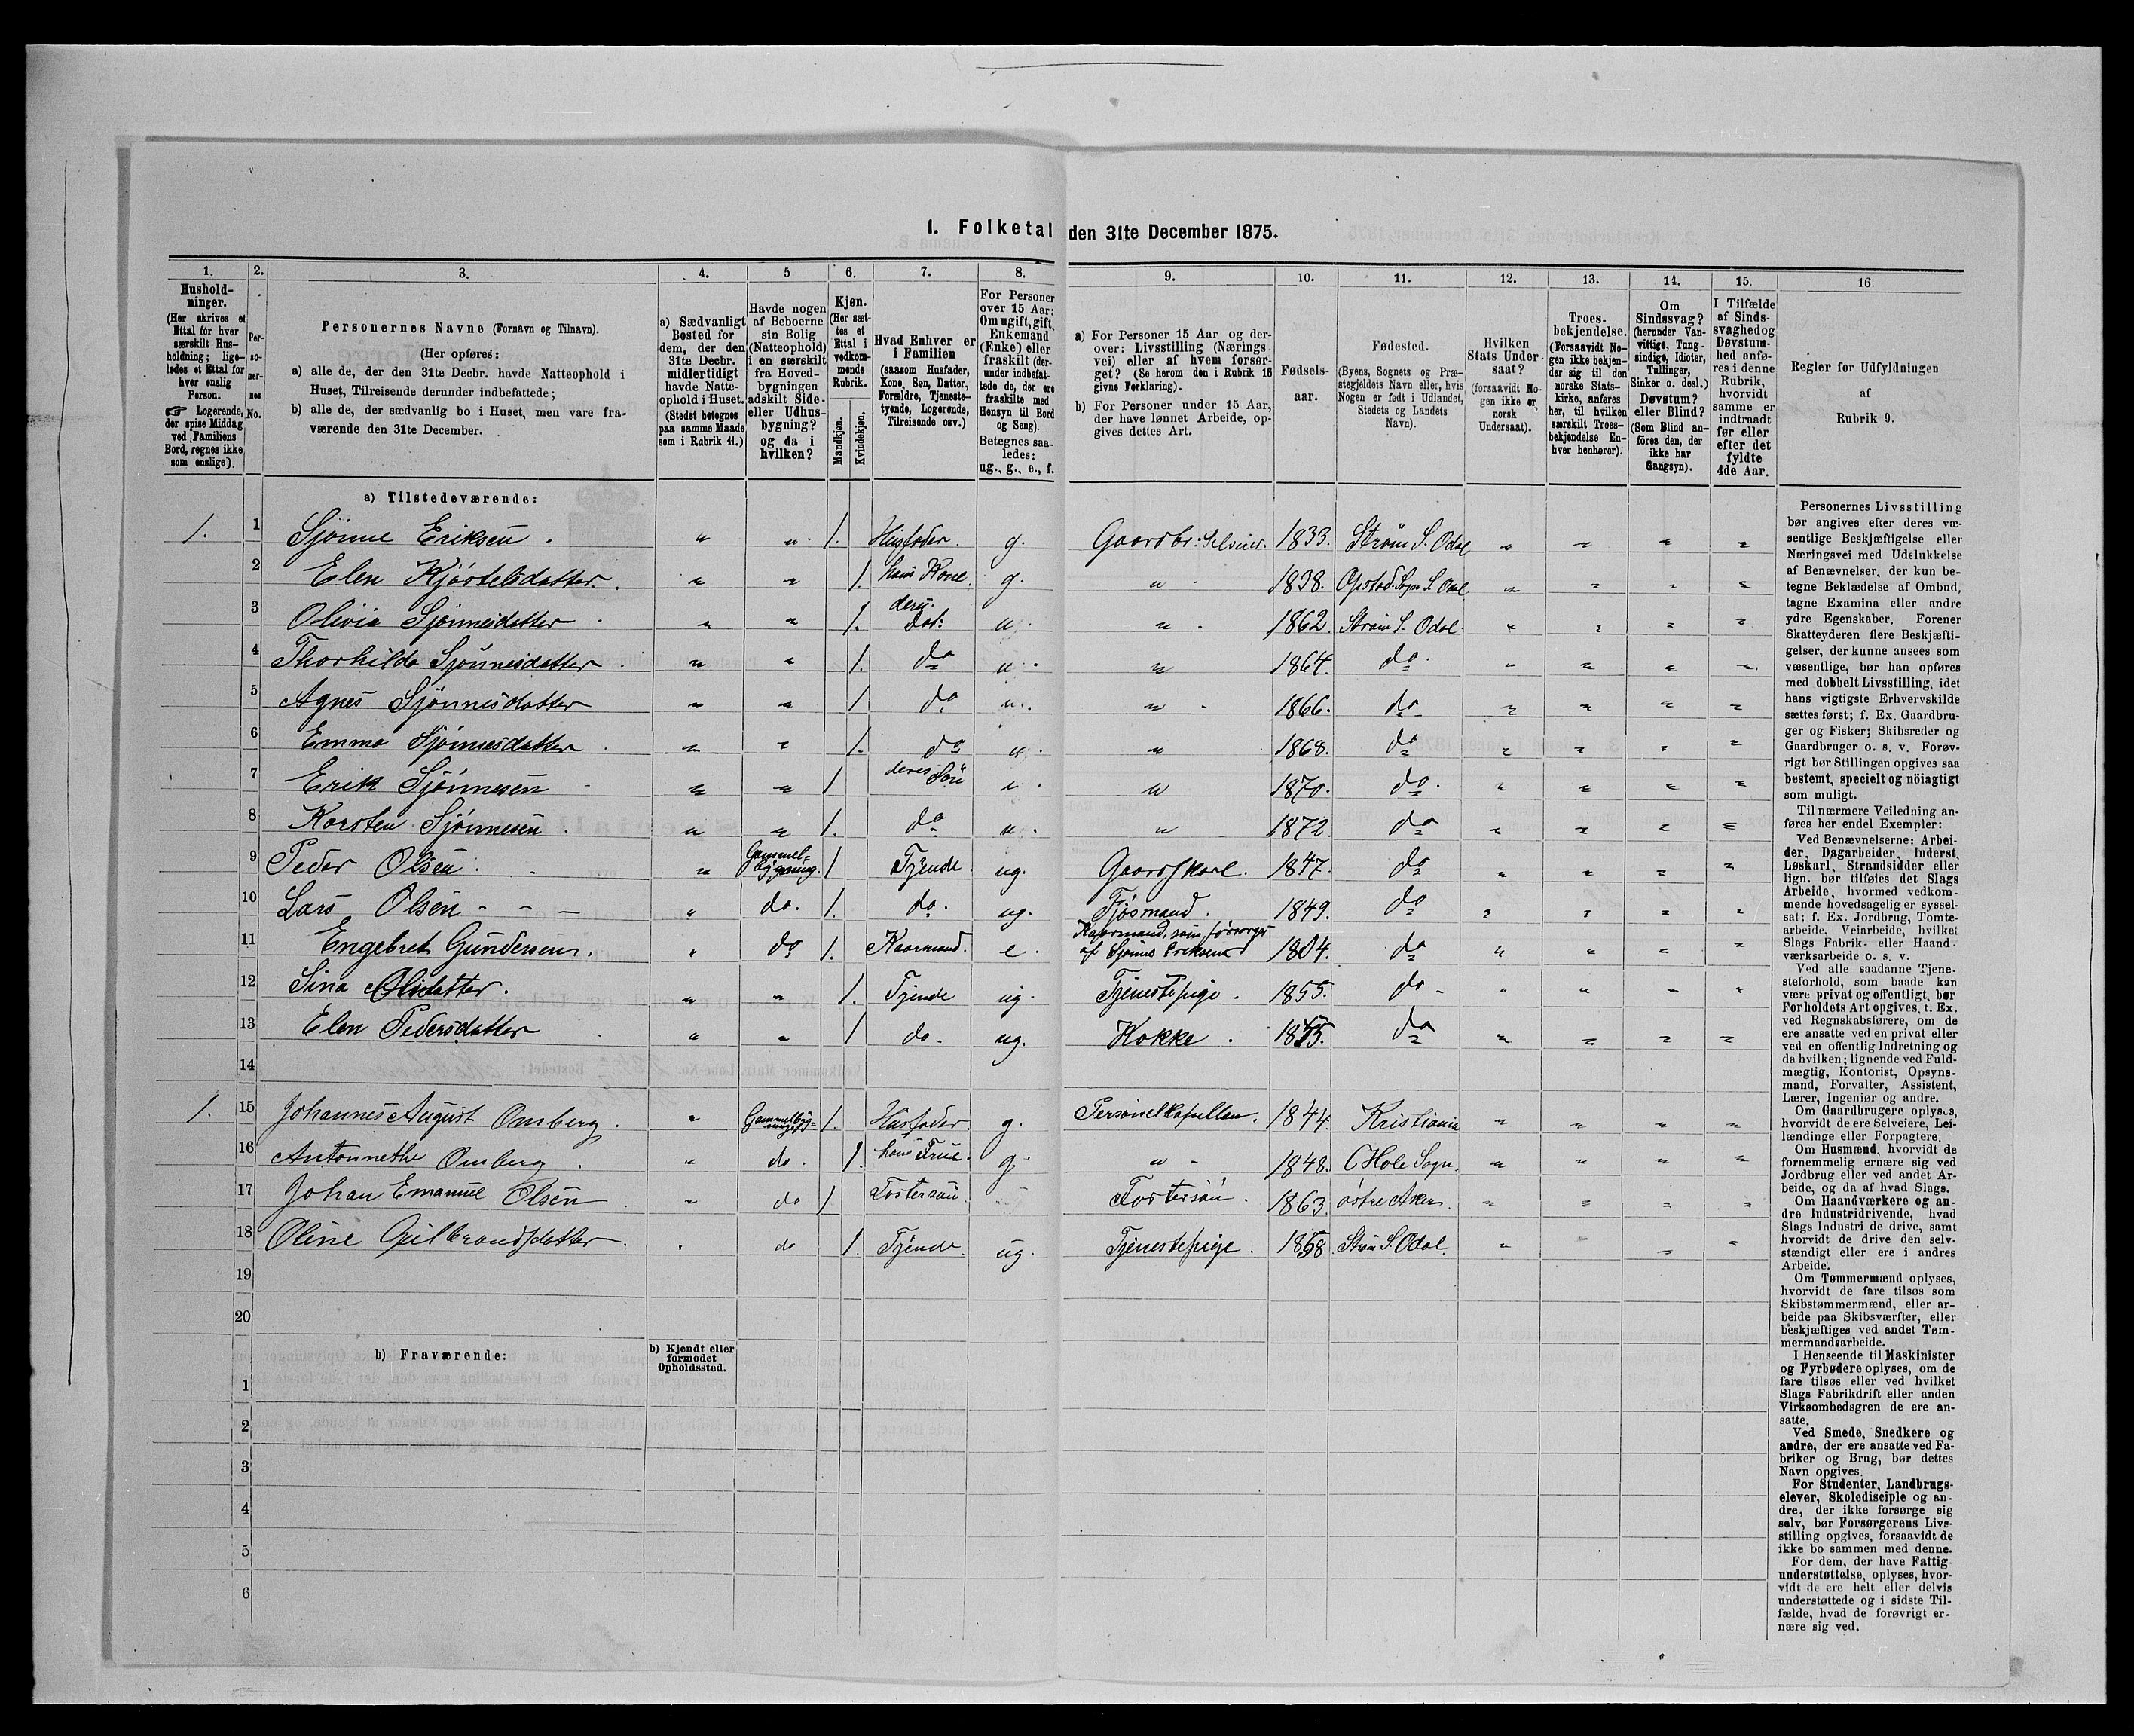 1. Folketal den 31te December 1875.
1. 2. 3. 4. 5 6. 7. 8. 9. 10. 11. 12. 13. 14. 15. 16.
Hushold-
ninger.
(Her skrives et
Ettal for hver
særskilt Hus-
holdning; lige-
ledes et Ettal for
hver enslig
Person.
☞ Logerende,
der spise Middag
ved Familiens
Bord, regnes ikke
som enslige).
Per-
so-
ner-
nes
No.
Personernes Navne (Fornavn og Tilnavn).
(Her opføres:
a) alle de, der den 31te Decbr. havde Natteophold i
Huset, Tilreisende derunder indbefattede;
b) alle de, der sædvanlig bo i Huset, men vare fra-
værende den 31te December.
a) Sædvanligt
Bosted for
dem, der den
31te Decbr.
midlertidigt
havde Natte-
ophold i Huset.
(Stedet betegnes
paa samme Maade
som i Rubrik 11.)
Havde nogen
af Beboerne
sin Bolig
(Natteophold)
i en særskilt
fra Hoved-
bygningen
adskilt Side-
eller Udhus-
bygning?
og da i
hvilken?
Kjøn.
(Her sæt-
tes et
Ettal i
vedkom-
mende
Rubrik.
Mandkjøn.
Kvindekjøn.
Hvad Enhver er
i Familien
(saasom Husfader,
Kone, Søn, Datter,
Forældre, Tjeneste-
tyende, Logerende,
Tilreisende osv.)
For Personer
over 15 Aar:
Om ugift, gift,
Enkemand
(Enke) eller
fraskilt (der-
under indbefat-
tede de, der ere
fraskilte med
Hensyn til Bord
og Seng).
Betegnes saa-
ledes:
ug., g., e., f.
a) For Personer 15 Aar og der-
over: Livsstilling (Nærings-
vei) eller af hvem forsør-
get? (Se herom den i Rubrik 16
givne Forklaring).
b) For Personer under 15 Aar,
der have lønnet Arbeide, op-
gives dettes Art.
Fødsels-
aar.
Fødested.
(Byens, Sognets og Præ-
stegjeldets Navn eller, hvis
Nogen er født i Udlandet,
Stedets og Landets
Navn).
Hvilken
Stats Under-
saat?
(forsaavidt No-
gen ikke er
norsk
Undersaat).
Troes-
bekjendelse.
(Forsaavidt No-
gen ikke bekjen-
der sig til den
norske Stats-
kirke, anføres
her, til hvilken
særskilt Troes-
bekjendelse En-
hver henhører).
Om
Sindssvag?
(herunder Van-
vittige, Tung-
sindige, Idioter,
Tullinger,
Sinker o. desl.)
Døvstum?
eller Blind?
(Som Blind an-
føres den, der
ikke har
Gangsyn).
I Tilfælde
af Sinds-
svaghed og
Døvstum-
hed anfø-
res i denne
Rubrik,
hvorvidt
samme er
indtraadt
før eller
efter det
fyldte
4de Aar.
Regler for Udfyldningen
af
Rubrik 9.
a) Tilstedeværende:
1. 1 Sjønne Eriksen. " " 1. Husfader. g. Gaardbr: Selveier. 1833. Strøm S. Odal " " " "
2 Elen Kjøstelsdatter. " " 1. hans Kone. g. " 1838. Opstad Sogn S. Odal " " " "
3 Olivia Sjønnesdatter " " 1. deres Dat: u. " 1862. Strøm S. Odal. " " " "
4 Thorhilda Sjønnesdatter " " 1. do u. " 1864. do. " " " "
5 Agnes Sjønnesdatter " " 1 do u. " 1866. do " " " "
6 Emma Sjønnesdatter " " 1. do u. " 1868. do " " " "
7 Erik Sjønnesen " " 1 deres Søn u. " 1870. do. " " " "
8 Karsten Sjønnesen. " " 1. do u. " 1872. do " " " "
9 Peder Olsen. " Gammel-bygning. 1 Tjende. ug. Gaardskarl. 1847. do " " " "
10 Lars Olsen - - - " do. 1. do. ug. Fjøsmand. 1849. do " " " "
11 Engebret Gundersen. " do 1. Kaarmand. e. Kaarmand, som forsørges af Sjønne Eriksen 1804. do " " " "
12 Sina Olsdatter. " " 1. Tjende ug. Tjenestepige. 1855. do - " " " "
13 Elen Pedersdatter " " 1 do. ug. Kokke. 1855. do " " " "
14
1. 15 Johannes August Omberg. " Gammelbyg-ning 1. Husfader. g. Personelkapellan. 1844. Kristiania " " " "
16 Antonnethe Omberg. " do. 1. hans Frue. g. " 1848. Hole Sogn. " " " "
17 Johan Emanuel Olsen " do 1 Fostersøn. Fostersøn. 1863. østre Aker. " " " "
18 Oline Gulbrandsdatter. " do 1. Tjende. ug. Tjenestepige. 1858 Strøm S. Odal. " " " "
19
20
b) Fraværende:
b) Kjendt eller
formodet
Opholdssted.
1
2
3
4
5
6
Personernes Livsstilling
bør angives efter deres væ-
sentlige Beskjæftigelse eller
Næringsvei med Udelukkelse
af Benævnelser, der kun be-
tegne Beklædelse af Ombud,
tagne Examina eller andre
ydre Egenskaber. Forener
Skatteyderen flere Beskjæfti-
gelser, der kunne ansees som
væsentlige, bør han opføres
med dobbelt Livsstilling, idet
hans vigtigste Erhvervskilde
sættes først; f. Ex. Gaardbru-
ger og Fisker; Skibsreder og
Gaardbruger o. s. v. Forøv-
rigt bør Stillingen opgives saa
bestemt, specielt og nöiagtigt
som muligt.
Til nærmere Veiledning an-
føres her endel Exempler:
Ved Benævnelserne: Arbei-
der, Dagarbeider, Inderst,
Løskarl, Strandsidder eller
lign. bør tilføies det Slags
Arbeide, hvormed vedkom-
mende hovedsagelig er syssel-
sat; f. Ex. Jordbrug, Tomte-
arbeide, Veiarbeide, hvilket
Slags Fabrik- eller Haand-
værksarbeide o. s. v.
Ved alle saadanne Tjene-
steforhold, som baade kan
være privat og offentligt, bør
Forholdets Art opgives, t. Ex.
ved Regnskabsførere, om de
ere ansatte ved en privat eller
ved en offentlig Indretning og
da hvilken; lignende ved Fuld-
mægtig, Kontorist, Opsyns-
mand, Forvalter, Assistent,
Lærer, Ingeniør og andre.
Om Gaardbrugere oplyses,
hvorvidt de ere Selveiere, Lei-
lændinge eller Forpagtere.
Om Husmænd, hvorvidt de
fornemmelig ernære sig ved
Jordbrug eller ved andet Ar-
beide, og da af hvad Slags.
Om Haandværkere og an-
dre Industridrivende, hvad
Slags Industri de drive, samt
hvorvidt de drive den selv-
stændigt eller ere i andres
Arbeide.
Om Tømmermænd oplyses,
hvorvidt de fare tilsøs som
Skibstømmermænd, eller ar-
beide paa Skibsværfter, eller
beskjæftiges ved andet Tøm-
mermandsarbeide.
I Henseende til Maskinister
og Fyrbødere oplyses, om de
fare tilsøs eller ved hvilket
Slags Fabrikdrift eller anden
Virksomhedsgren de ere an-
satte.
Ved Smede, Snedkere og
andre, der ere ansatte ved Fa-
briker og Brug, bør dettes
Navn opgives.
For Studenter, Landbrugs-
elever, Skoledisciple og an-
dre, der ikke forsørge sig
selv, bør Forsørgerens Livs-
stilling opgives, forsaavidt de
ikke bo sammen med denne.
For dem, der have Fattig-
understøttelse, oplyses, hvor-
vidt de ere helt eller delvis
understøttede og i sidste Til-
fælde, hvad de forøvrigt er-
nære sig ved.